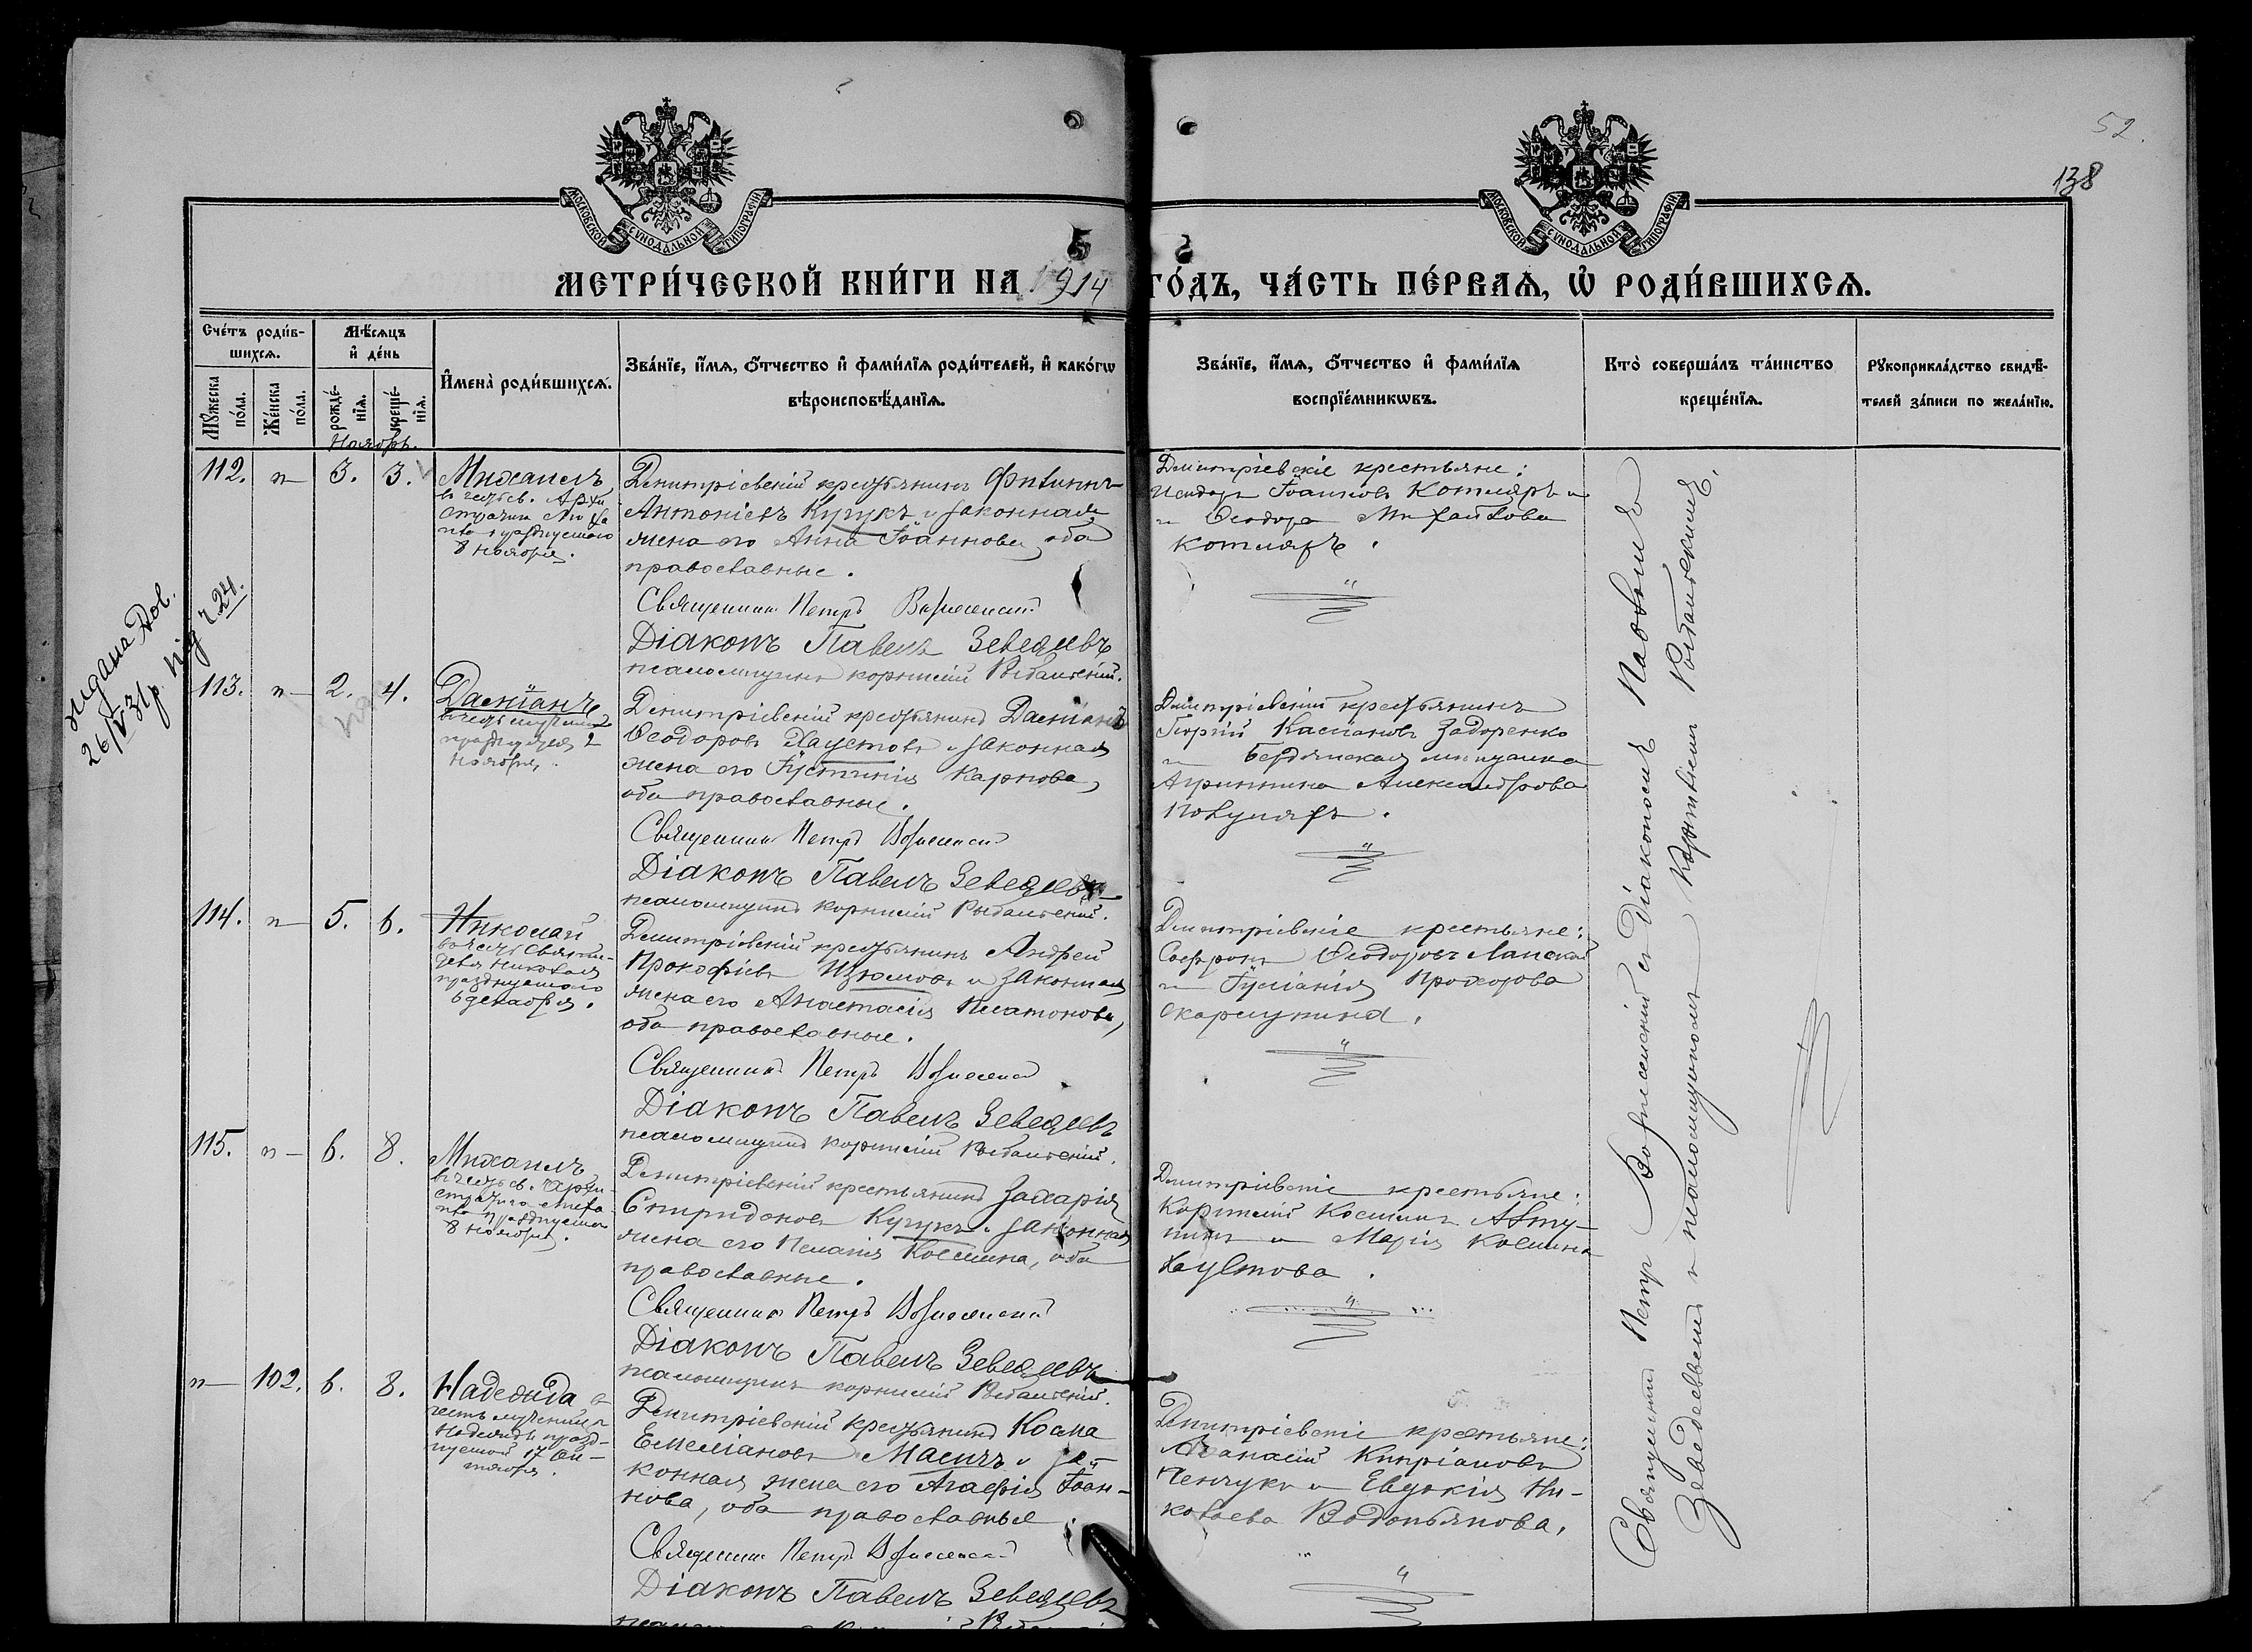 52.
138
МОСКОВСКОЙ СѴНОДАЛЬНОЙ ТИПОГРАФІИ
МОСКОВСКОЙ СѴНОДАЛЬНОЙ ТИПОГРАФІИ
МЕТРИ́ЧЕСКОЙ КНИ́ГИ НА 1914 ГО́ДЪ, ЧА́СТЬ ПЕ́РВАѦ, Ѡ҆ РОДИ́ВШИХСѦ.
Сче́тъ роди́в-
шихсѧ.
Мꙋ́жеска по́ла.
Же́нска по́ла.
Мѣ́сѧцъ
и҆ де́нь
рожде́-нїѧ.
креще́-нїѧ.
И҆мена̀ роди́вшихсѧ.
Зва́нїе, и҆́мѧ, ѻ҆́тчество и҆ фами́лїѧ роди́телей, и҆ како́гѡ
вѣроисповѣ́данїѧ.
Зва́нїе, и҆́мѧ, ѻ҆́тчество и҆ фами́лїѧ
воспрїе́мникѡвъ.
Кто̀ соверша́лъ та́инство
креще́нїѧ.
Рꙋкоприкла́дство свидѣ́-
телей за́писи по жела́нїю.
Ноябрь.
112. " 3. 3.
Михаилъ
въ честь св. Архи
стратига Миха
ила празднуемаго
8 ноября.
Димитріевскій крестьянинъ Филиппъ
Антоніевъ Кугукъ и законная
жена его Анна Іоаннова, оба
православные.
Священникъ Петръ Вознесенскій
Діаконъ Павелъ Зеведеевъ
псаломщикъ Корнилій Рыбальскій.
Димитріевскіе крестьяне:
Исидоръ Іоанновъ Котляръ
и Ѳеодора Михайлова
Котляръ.
26/V 31р.
113. " 2. 4.
Дасіанъ
празднуемаго 2
ноября.
Димитріевскій крестьянинъ
Ѳеодоровъ Хаустовъ и законная
жена его Іустинія Карпова,
оба православные.
Священникъ Петръ Вознесенскій
Діаконъ Павелъ Зеведеевъ
псаломщикъ Корнилій Рыбальскій.
Димитріевскій крестьянинъ
Георгій Касіановъ Задоренко
и Бердянская мѣщанка
Агриппина Александрова
114. " 5. 6.
Николай
въ честь Святи-
теля Николая
празднуемаго
6 декабря.
Димитріевскій крестьянинъ Андрей
Прокофіевъ Изюмовъ и законная
жена его Анастасія Платонова,
оба православные.
Священникъ Петръ Вознесенскій
Діаконъ Павелъ Зеведеевъ
псаломщикъ Корнилій Рыбальскій.
Димитріевскіе крестьяне:
Софронъ Ѳеодоровъ Ланской
и Іуліанія Прохорова
115. " 6. 8.
Михаилъ
въ честь св. Архи
стратига Миха
ила празднуемаго
8 ноября.
Димитріевскій крестьянинъ Захарія
Спиридоновъ Кугукъ и законная
жена его Пелагія Космина, оба
православные.
Священникъ Петръ Вознесенскій
Діаконъ Павелъ Зеведеевъ
псаломщикъ Корнилій Рыбальскій.
Димитріевскіе крестьяне:
Корнилій Косминъ
и Марія Космина
Хаустова.
" 102. 6. 8.
Надежда въ
честь мученицы
Надежды празд-
нуемой 17 Сен-
тября.
Димитріевскій крестьянинъ Косма
Емеліановъ Масичъ и за-
конная жена его Агафія Іоан-
нова, оба православные.
Священникъ Петръ Вознесенскій
Діаконъ Павелъ Зеведеевъ
Димитріевскіе крестьяне:
Аѳанасій Кипріановъ
Ченчукъ и Евдокія Ни-
колаева Водопьянова.
Священникъ Петръ Вознесенскій съ Діакономъ Павломъ
Зеведеевымъ и псаломщикомъ Корниліемъ Рыбальскимъ.